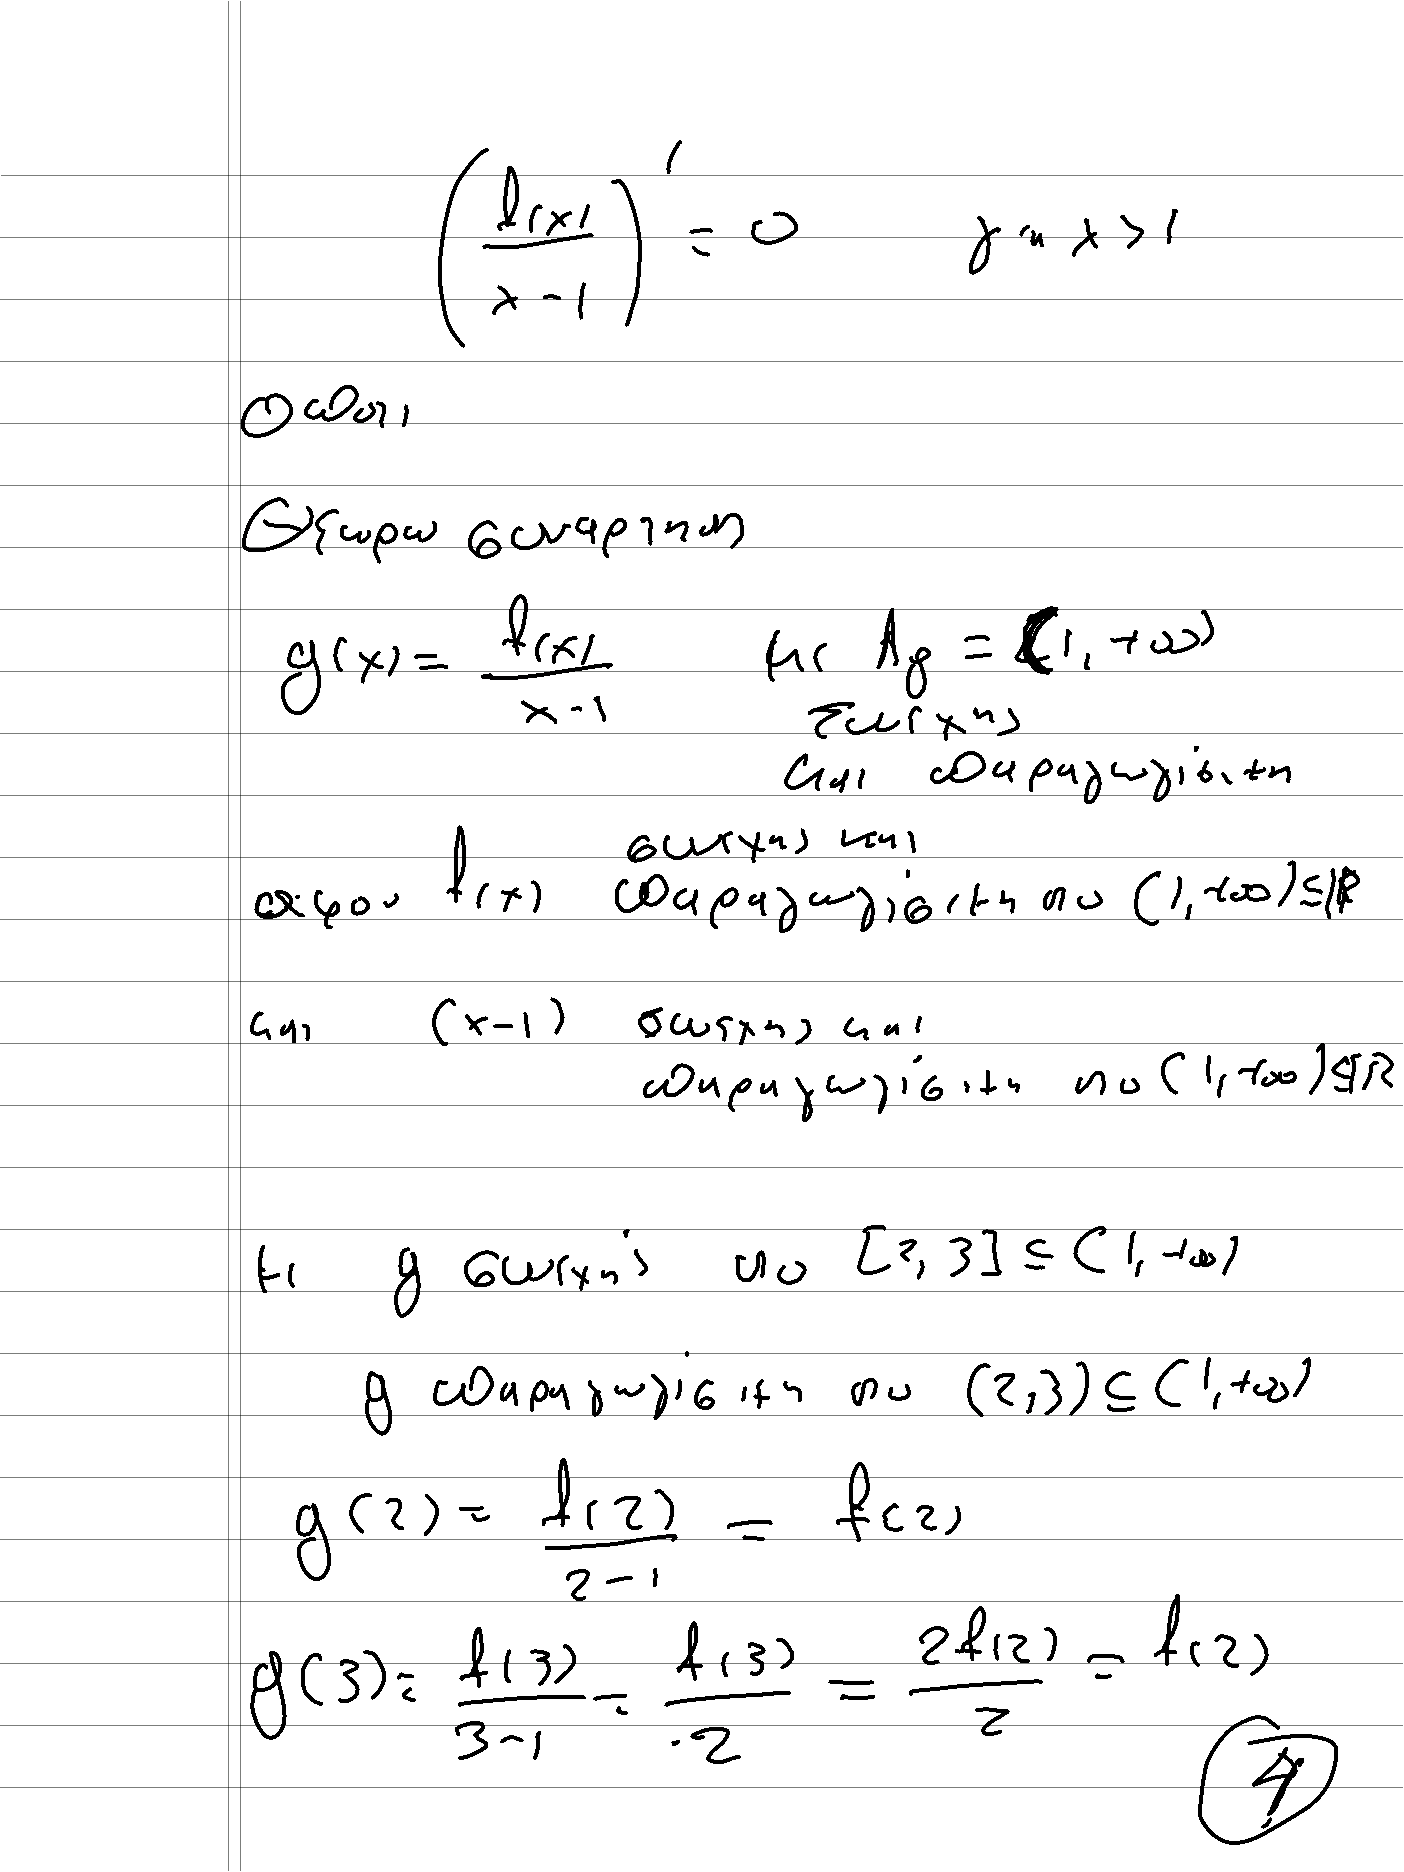 (f(x)/(x-1))' = 0 για x > 1
Οπότε
Θεωρω συναρτηση
g(x) = f(x)/(x-1) με Ag = (1, +∞)
Συνεχης
και παραγωγίσιμη
συνεχης και
αφου f(x) παραγωγίσιμη στο (1, +∞) ⊆ ℝ
και (x-1) συνεχης και
παραγωγίσιμη στο (1, +∞) ⊆ ℝ
με g συνεχής στο [2, 3] ⊆ (1, +∞)
g παραγωγίσιμη στο (2, 3) ⊆ (1, +∞)
g(2) = f(2)/(2-1) = f(2)
g(3) = f(3)/(3-1) = f(3)/2 = 2f(2)/2 = f(2)
4